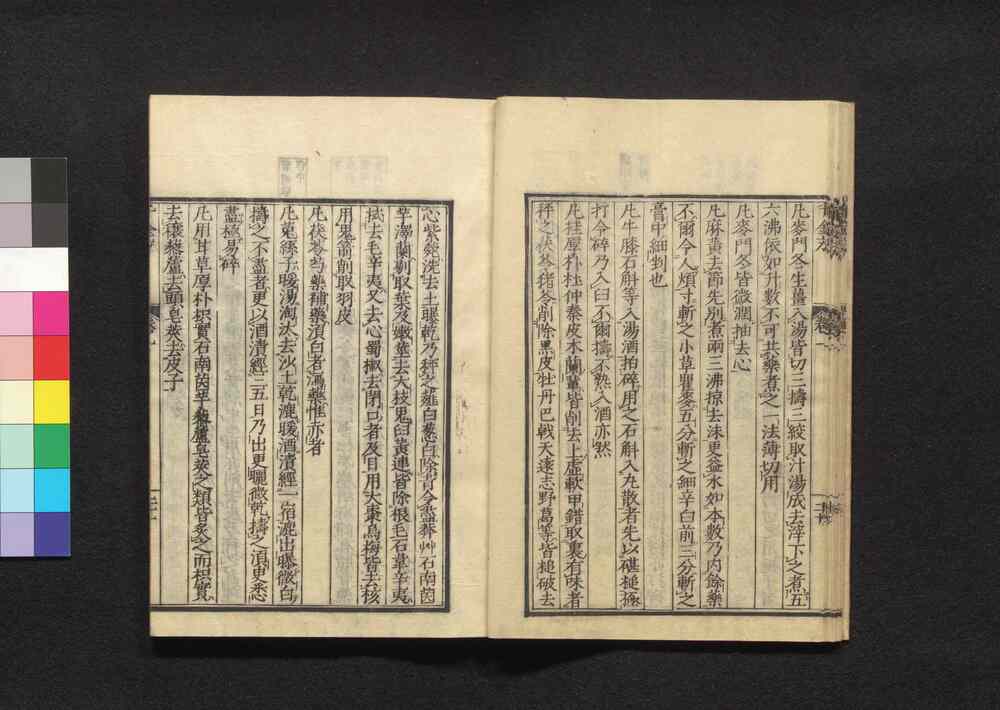 凡麥門冬生薑入湯皆切三擣三絞取汁湯成去滓下之者五
六沸依如升數不可共藥煮之一法薄切用
凡麥門冬皆微潤抽去心
凡麻黃去節先別煮兩三沸掠去沫更益水如本數乃內餘藥
不爾令人煩寸斬之小草瞿麥五分斬之細辛白前三分斬之
膏中細剉也
凡牛膝石斛等入湯酒拍碎用之石斛入丸散者先以碪槌極
打令碎乃入臼不爾擣不熟入酒亦然
凡桂厚朴杜仲秦皮木蘭軰皆削去上虛軟甲錯取裏有味者
秤之茯苓猪苓削除黑皮牡丹巴戟天遠志野葛等皆槌破去
心紫菀洗去土曝乾乃秤之薤白葱白除青令盡莽艸石南茵
芋澤蘭剔取葉及嫩莖去大枝鬼臼黃連皆除根毛石韋辛夷
拭去毛辛夷又去心蜀椒去閉口者及目用大棗烏梅皆去核
用鬼箭削取羽皮
凡茯苓芍藥補藥湏白者瀉藥惟赤者
凡菟絲子暖湯淘汰去沙土乾漉暖酒漬經一宿漉出曝微白
擣之不盡者更以酒漬經三五日乃出更曬微乾擣之湏臾悉
盡極易碎
凡用甘草厚朴枳實石南茵芋藜蘆皂莢之類皆炙之而枳實
去穰藜蘆去頭皂莢去皮子